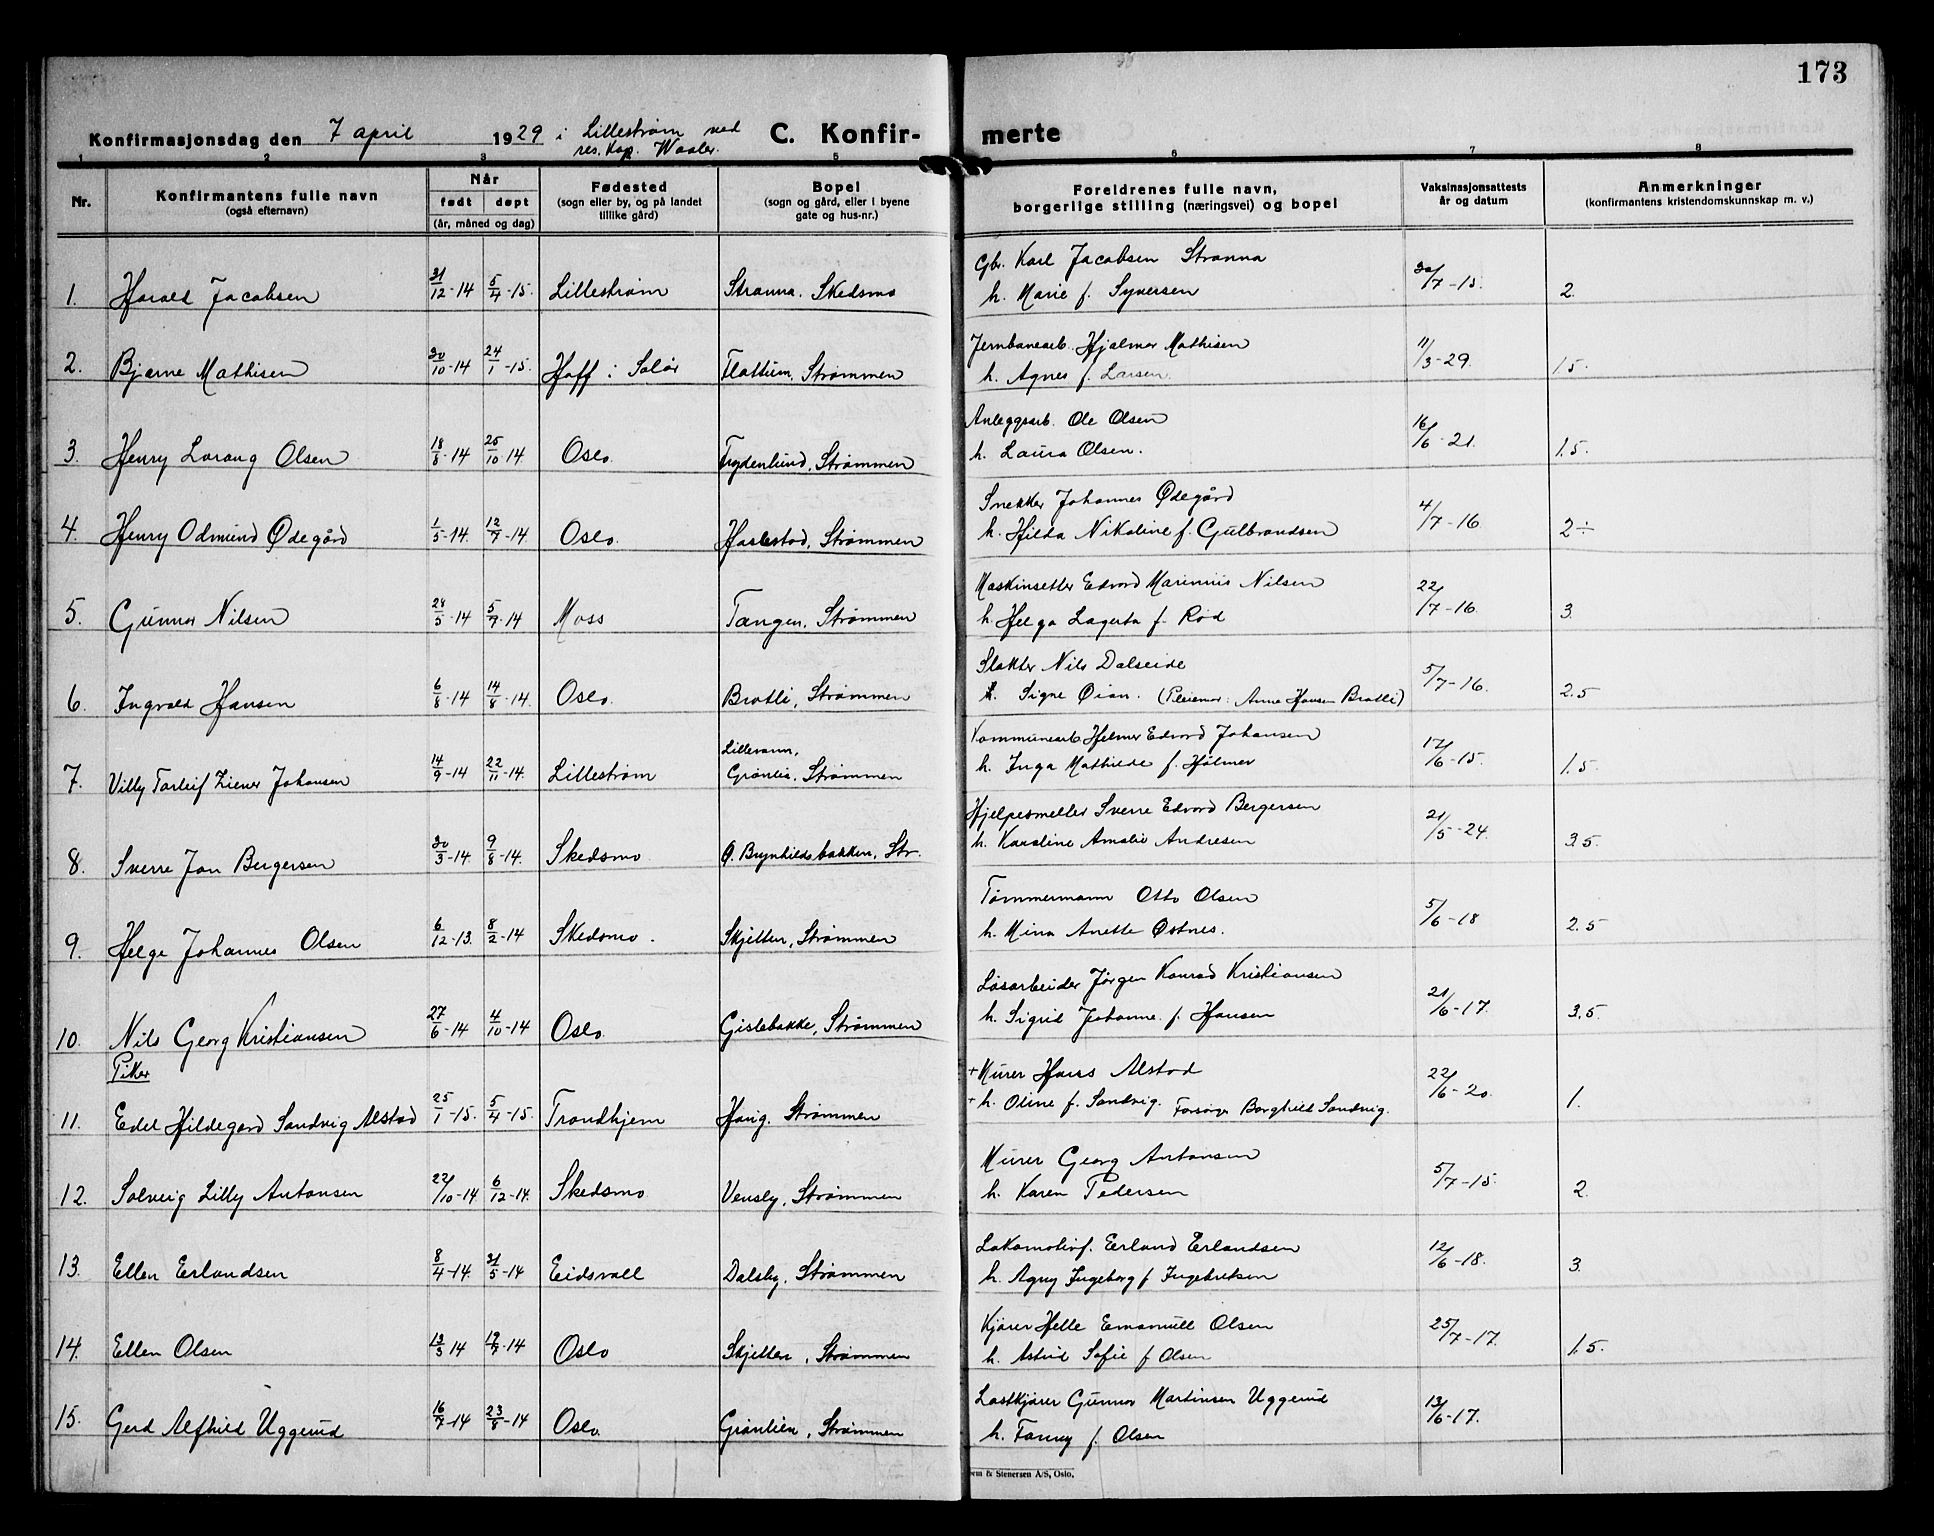 173
Konfirmasjonsdag den 7 april 1929 i Lillestrøm ved
res. kap. Waaler.
C. Konfirmerte
1 2 3 5 6 7 8
Nr. Konfirmantens fulle navn (også efternavn) Når født døpt (år, måned og dag) Fødested (sogn eller by, og på landet tillike gård) Bopel (sogn og gård, eller i byene gate og hus-nr.) Foreldrenes fulle navn, borgerlige stilling (næringsvei) og bopel Vaksinasjonsattests år og datum Anmerkninger (konfirmantens kristendomskunnskap m. v.)
Gbr. Karl Jacobsen Stranna
1. Harald Jacobsen 31/12-14 5/4-15. Lillestrøm Stranna. Skedsmo h. Marie f. Syversen 30/7-15. 2.
Jernbanearb. Hjalmar Mathisen
2. Bjarne Mathisen 30/10-14 24/1-15. Hoff i Solør Flattum, Strømmen h. Agnes f. Larsen 11/3-29. 1.5.
Anleggsarb. Ole Olsen
3. Henry Lorang Olsen 18/8-14 25/10-14. Oslo. Frydenlund, Strømmen h. Laura Olsen. 16/6-21. 1.5.
Snekker Johannes Ødegård
4. Henry Odmund Ødegård 1/5-14. 12/7-14 Oslo. Haslestad, Strømmen h. Hilda Nikoline f. Gulbrandsen 4/7-16. 2÷
Maskinsetter Edvard Marinius Nilsen
5. Gunnar Nilsen 28/5-14 5/7-14 Moss Tangen, Strømmen h. Helga Lagerta f. Rød 22/7-16. 3.
Slakter Nils Dalseide
6. Ingvald Hansen 6/8-14 14/8-14. Oslo. Bratli, Strømmen Signe Øian. (Pleiemor: Anna Hansen Bratli) 5/7-16. 2.5
Kommunearb. Helmer Edvard Johansen
Lillevann,
7. Villy Torleif Ziener Johansen 14/9-14 22/11-14. Lillestrøm Grønlia, Strømmen h. Inga Mathilde f. Holmer 17/6-15. 1.5.
Hjelpesmelter Sverre Edvard Bergersen
8. Sverre Jan Bergersen 30/3-14 9/8-14. Skedsmo. Ø. Brynhildsbakken, Str. h. Karoline Amalie Andresen 21/5-24. 3.5.
Tømmermann Otto Olsen
9. Helge Johannes Olsen 6/12-13. 8/2-14 Skedsmo. Skjetten, Strømmen h. Mina Anette Østnes. 5/6-18 2.5
Løsarbeider Jørgen Konrad Kristiansen
10. Nils Georg Kristiansen 27/6-14 4/10-14 Oslo. Gislebakke, Strømmen h. Sigrid Johanne f. Hansen 21/6-17. 3.5.
Piker
+ Murer Hans Alstad
11. Edel Hildegard Sandvig Alstad 25/1-15. 5/4-15. Trondhjem Haug. Strømmen + h. Oline f. Sandvig. Forsørger Borghild Sandvig. 22/6-20. 1.
Murer Georg Antonsen
12. Solveig Lilly Antonsen 22/10-14 6/12-14. Skedsmo Vensly, Strømmen h. Karen Pedersen 5/7-15. 2.
Lokomotivf. Erland Erlandsen
13. Ellen Erlandsen 8/4-14. 31/5-14 Eidsvoll Dalsby, Strømmen h. Agny Ingeborg f. Ingebretsen 12/6-18. 3.
Kjører Helle Emanuell Olsen
14. Ellen Olsen 13/3 14 19/7-14 Oslo Skjetten, Strømmen h. Astrid Sofie f Olsen 25/7-17. 1.5.
Lastkjører Gunnar Martinsen Uggerud
15. Gerd Alfhild Uggerud 16/7-14 23/8-14 Oslo. Grønlien, Strømmen h. Fanny f. Olsen 13/6-17.
& Stenersen A/S, Oslo.